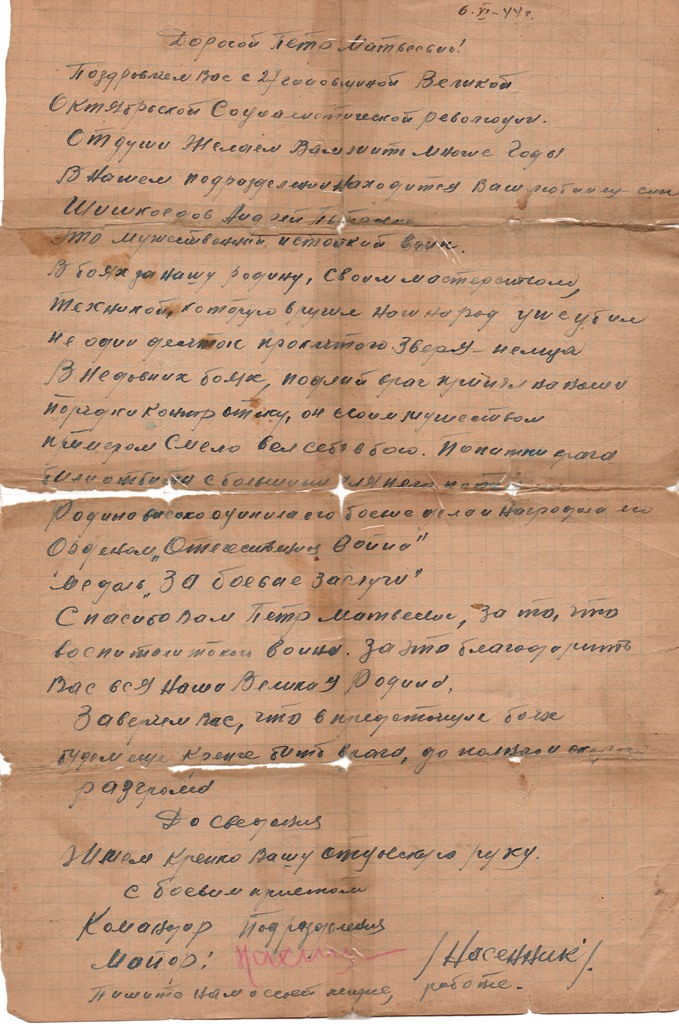 6.XI-44г.
Дорогой Петр Матвеевич!
Поздровляем Вас с 27 годовщиной Великой
Октябрьской Социалистической революции.
От души Желаем Вам жить многие Годы
В Нашем подразделении Находится Ваш любимец-сын
Шишкоедов Андрей
Это мужественный, и стойкий Воин.
В боях за нашу родину, Своим мастерством,
техникой, которую вручил наш народ уже убил
не один десяток проклятого Зверя-немца
В Недовних боях, подлый враг принял на наши
порядки контр отаку, он своим мужеством
примером Смело вел себя в бою. Попытки врага
были отбиты с большими для него
Родина высоко оценила его боевые дела и наградила его
Орденом „Отечественная Война"
медаль „За боевые Заслуги"
Спасибо Вам Петр Матвеевич, За то, что
воспитали такого Воина. За это благодарить
Вас вся Наша Великая Родина.
Заверяем Вас, что в предстоящие боях
будем еще Крепче бить врага, до полного
разгрома
До сведания
Жмем Крепко Вашу отцовскую руку.
с боевым приветом
Командир Подразделения
Майор: /Насенник/.
Пишите нам о своей жизне, работе.